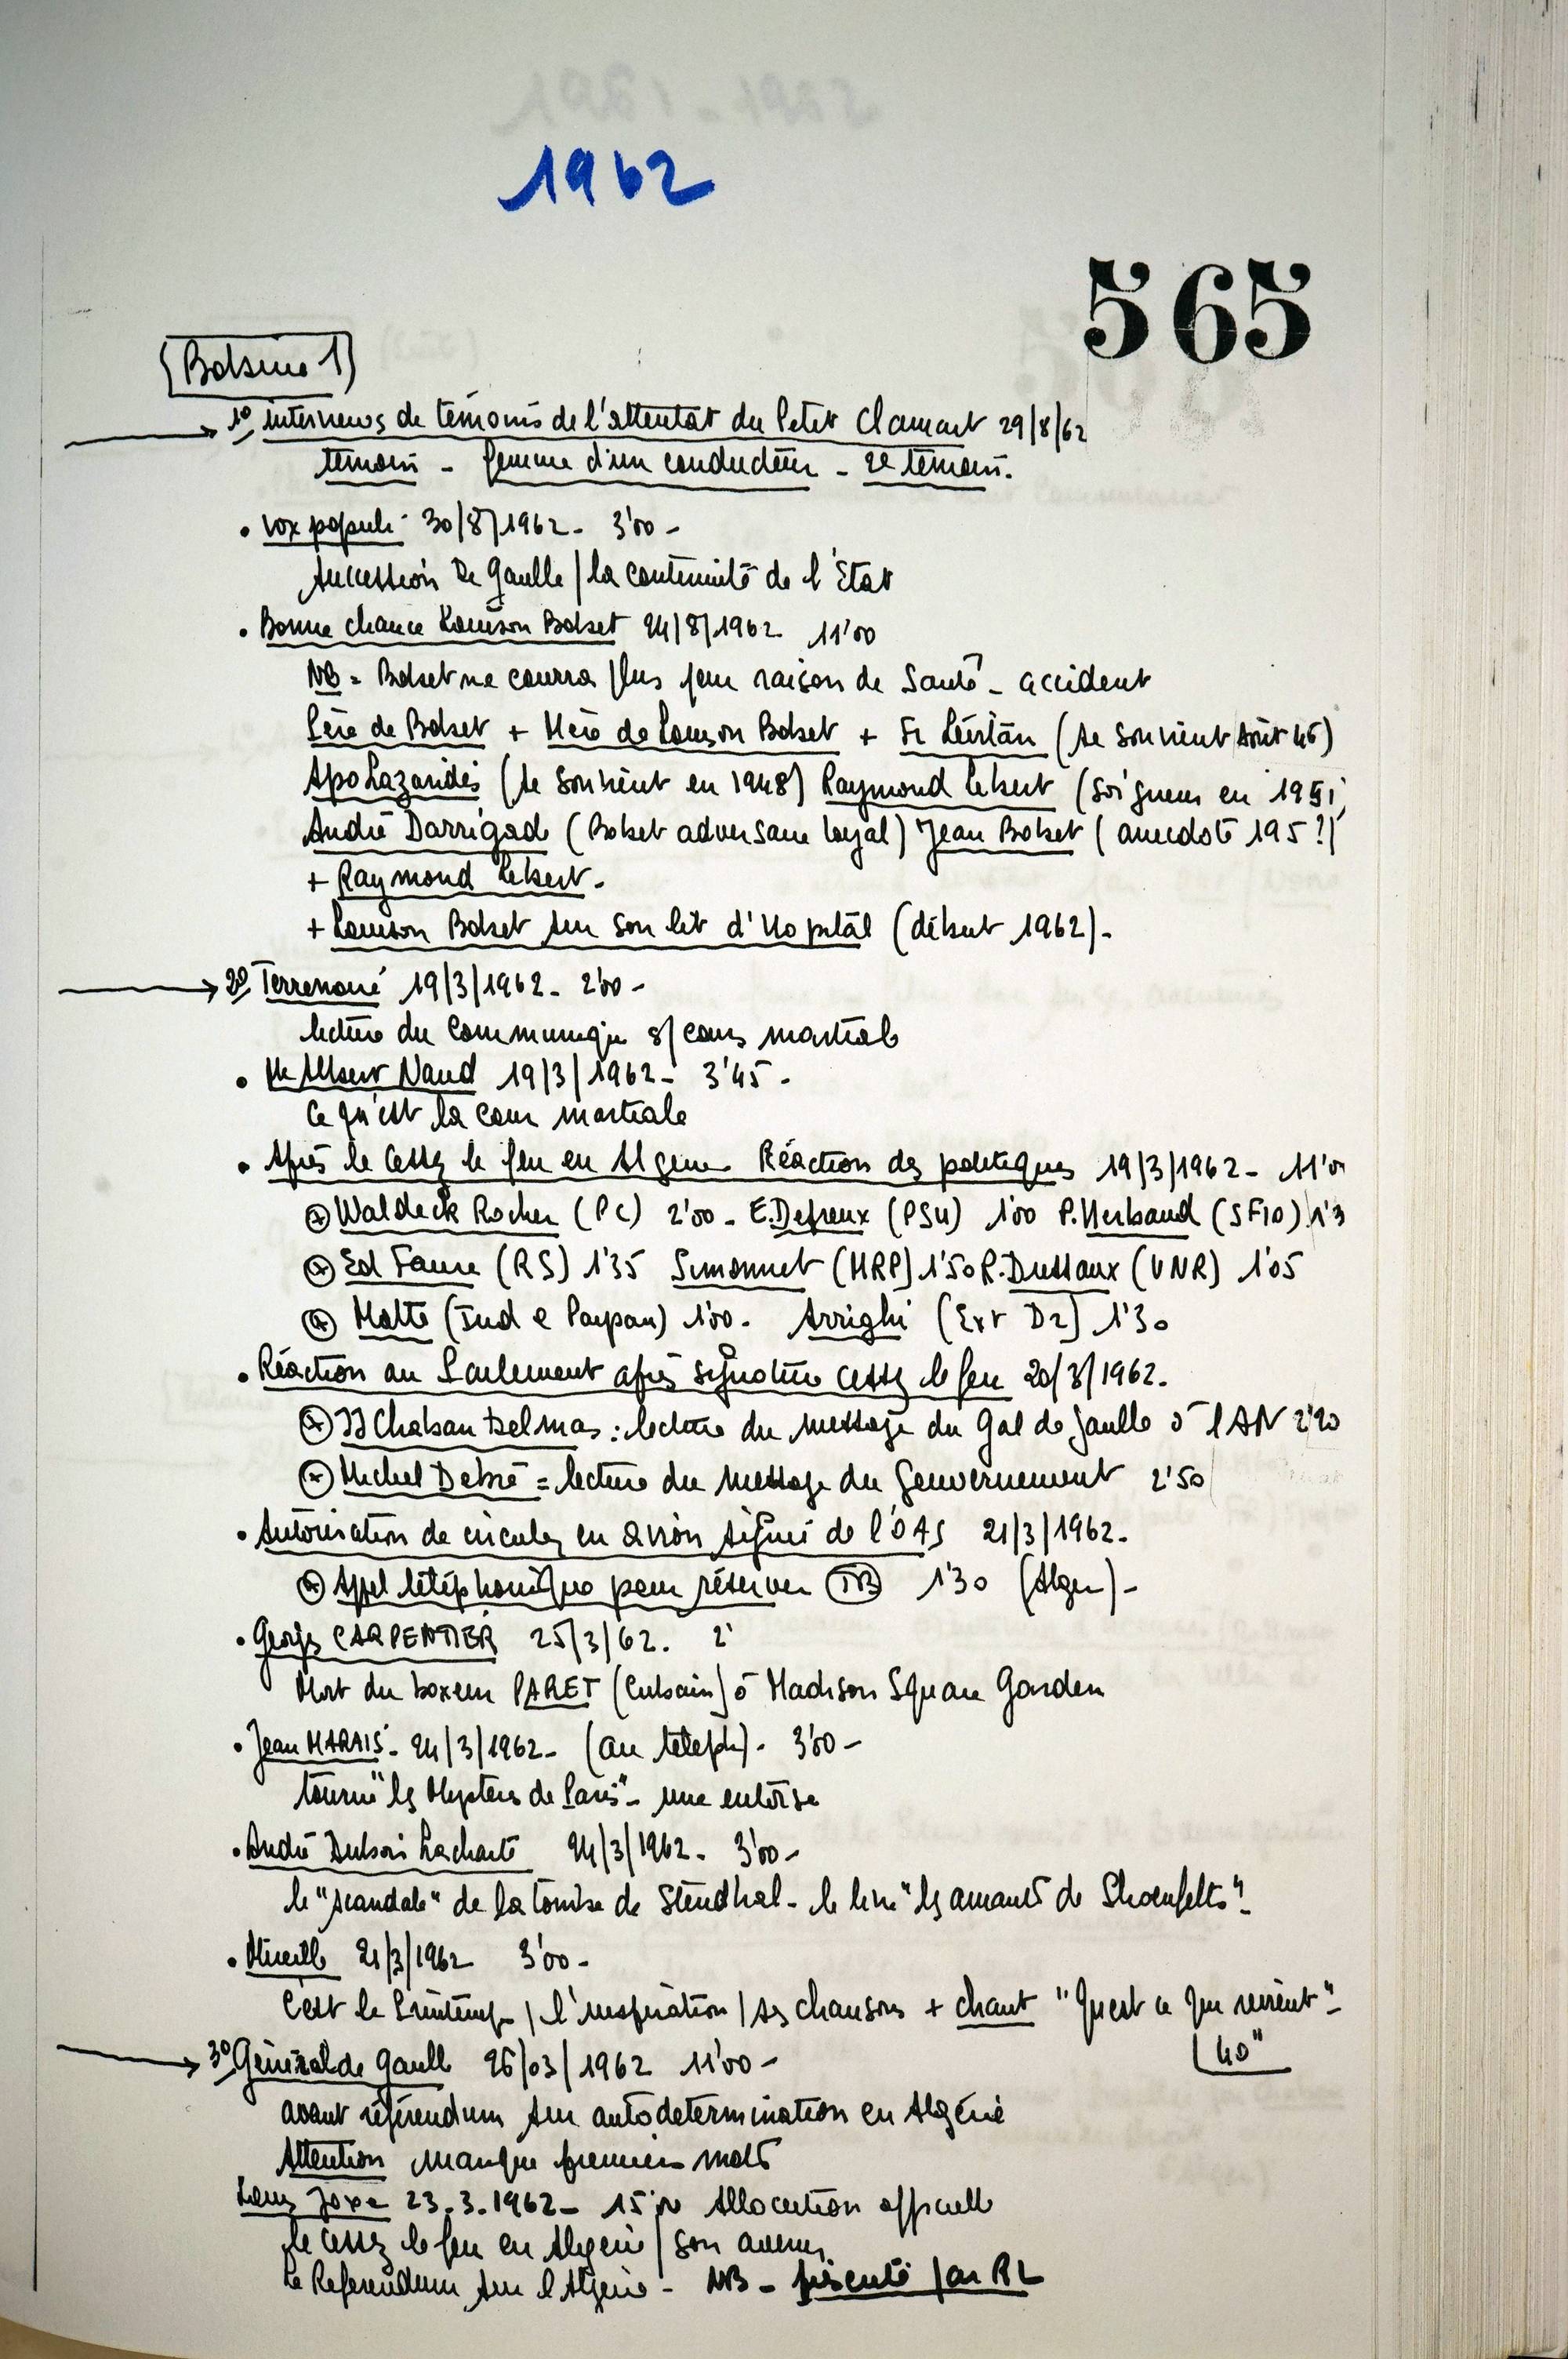 1962
565
Bobine 1
1° interviews de témoins de l'attentat du Petit Clamart 29/8/62
témoin - femme d'un conducteur - 2e témoin.
• vox populi 30/8/1962 - 3'00 -
succession De Gaulle / la continuité de l'Etat
• Bonne chance Louison Bobet 24/8/1962 11'00
NB = Bobet ne courra plus pour raison de santé - accident
Père de Bobet + Mère de Louison Bobet + (se souvient Août 46)
Apo Lazaridès (se souvient en 1948) Raymond Lebert (soigneur en 1951)
André Darrigade (Bobet adversaire loyal) Jean Bobet (anecdote 195?)
+ Raymond Lebert.
+ Louison Bobet sur son lit d'Hopital (début 1962) -
2° Terrenoire 19/3/1962 - 2'00 -
lecture du Communiqué s/ cours martiale
• Me Albert Naud 19/3/1962 - 3'45 -
Ce qu'est la cour martiale
• Après le Cessez le feu en Algérie Réaction des politiques 19/3/1962 - 11'0
Waldeck Rochet (PC) 2'00 - E. Depreux (PSU) 1'00 P. Herbaud (SFIO) 1'3
Ed Faure (RS) 1'35 Simonnet (MRP) 1'50 R. Dussaux (UNR) 1'05
Motte (Ind & Paysan) 1'00 - Arrighi (Ext Dr) 1'30
• Réaction au Parlement après signature cessez le feu 20/3/1962.
JJ Chaban Delmas : lecture du message du Gal de Gaulle à l'AN 2'20
Michel Debré = lecture du message du Gouvernement 2'50
• Autorisation de circuler en avion signée de l'OAS 21/3/1962.
Appel téléphonique pour réserver TB 1'30 (Alger) -
• Georges CARPENTIER 25/3/62. 2'
Mort du boxeur PARET (Cubain) à Madison Square Garden
• Jean MARAIS - 24/3/1962 - (au téléph) - 3'00 -
tourne "les Mystères de Paris" - une entorse
• André Dubois Lachartre 24/3/1962 - 3'00 -
le "scandale" de la tombe de Stendhal - le livre "les amants de
• Mireille 21/3/1962 3'00 -
C'est le Printemps / l'inspiration / ses chansons + chant "Qu'est ce qui revient" -
40"
3° Général de Gaulle 26/03/1962 11'00 -
avant référendum sur autodetermination en Algérie
Attention manque premiers mots
Louis Joxe 23.3.1962 - Allocution officielle
le cessez le feu en Algérie / son avenir
Le Referendum sur l'Algérie - NB - présenté par RL